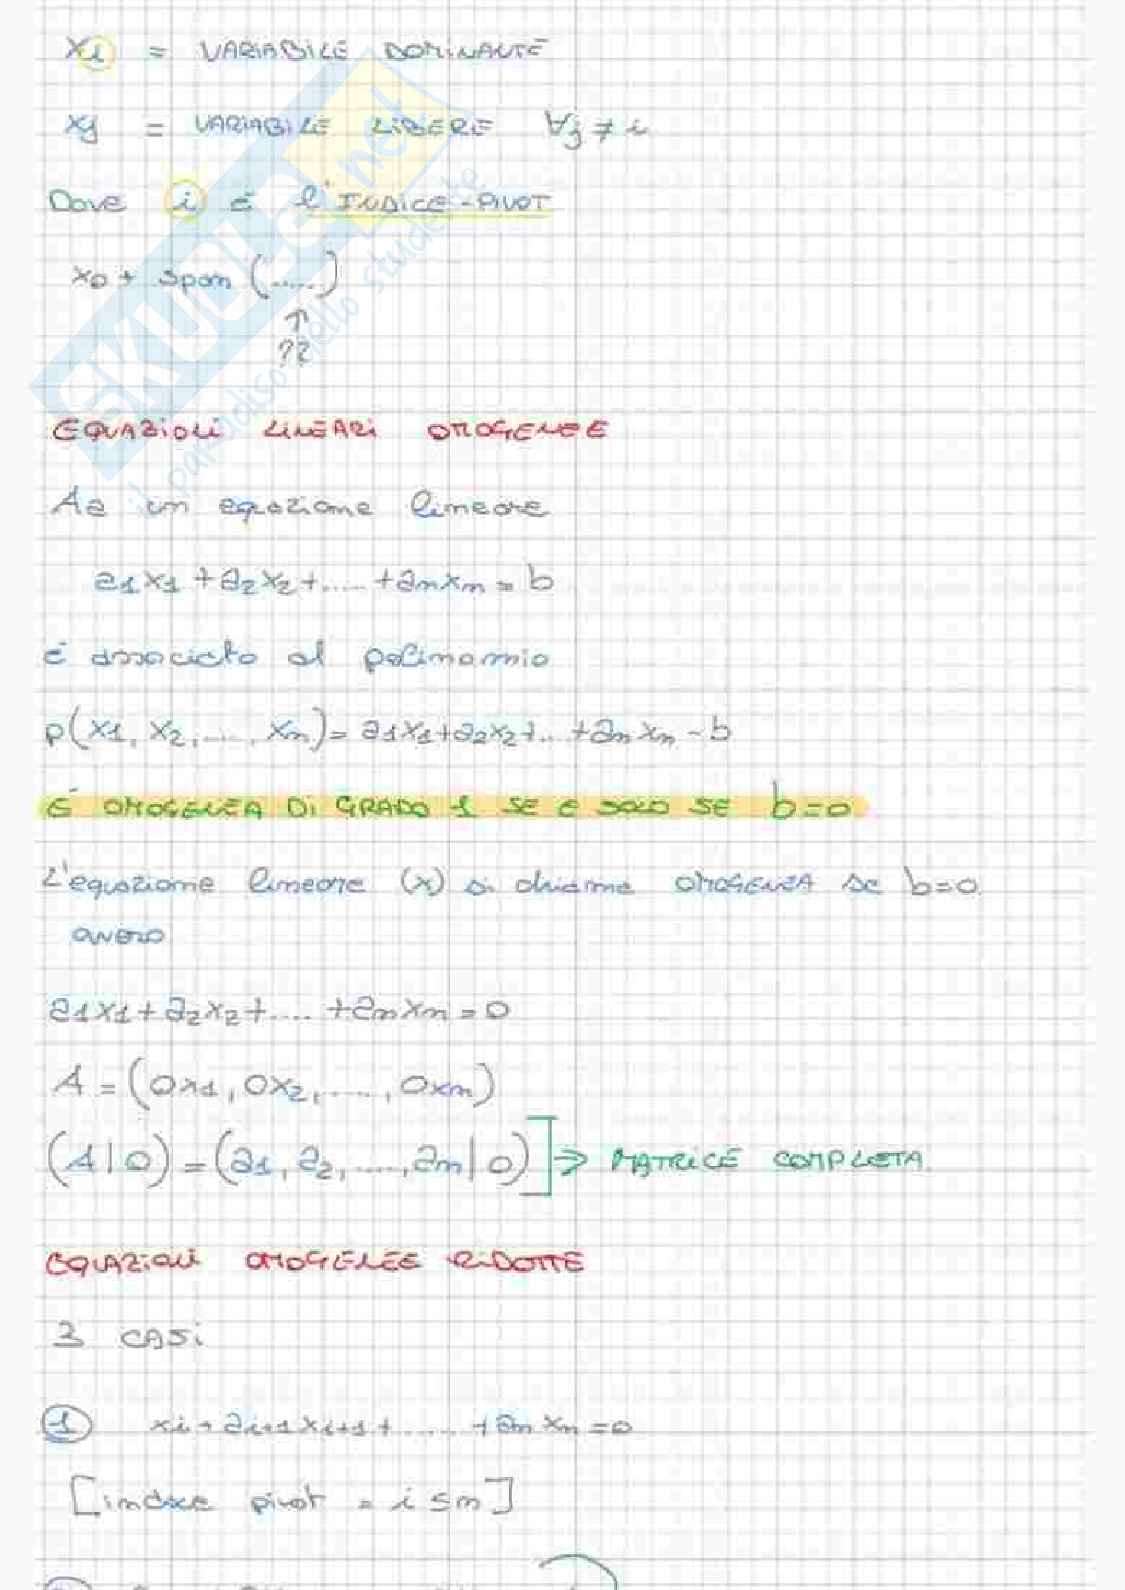 xi = VARIABILE DOMINANTE
xj = VARIABILE LIBERE ∀j ≠ i
Dove i é l'INDICE-PIVOT
x0 + span (.....)
↑
??
EQUAZIONI LINEARI OMOGENEE
Aa un equazione lineare
a1x1 + a2x2 + ..... + anxn = b
é associato al polinomio
p(x1, x2, ...., xn) = a1x1 + a2x2 + ... + anxn - b
É OMOGENEA DI GRADO 1 SE E SOLO SE b=0
L'equazione lineare (x) si chiama OMOGENEA se b=0
ovvero
a1x1 + a2x2 + .... + anxn = 0
A = (0x1, 0x2, ....., 0xn)
(A|0) = (a1, a2, ....., an|0)] => MATRICE COMPLETA
EQUAZIONI OMOGENEE RIDOTTE
3 CASi
1 xi + ai+1xi+1 + ..... + an xn = 0
[indice pivot = i ≤ n]
SKUOLA.net
il paradiso dello studente